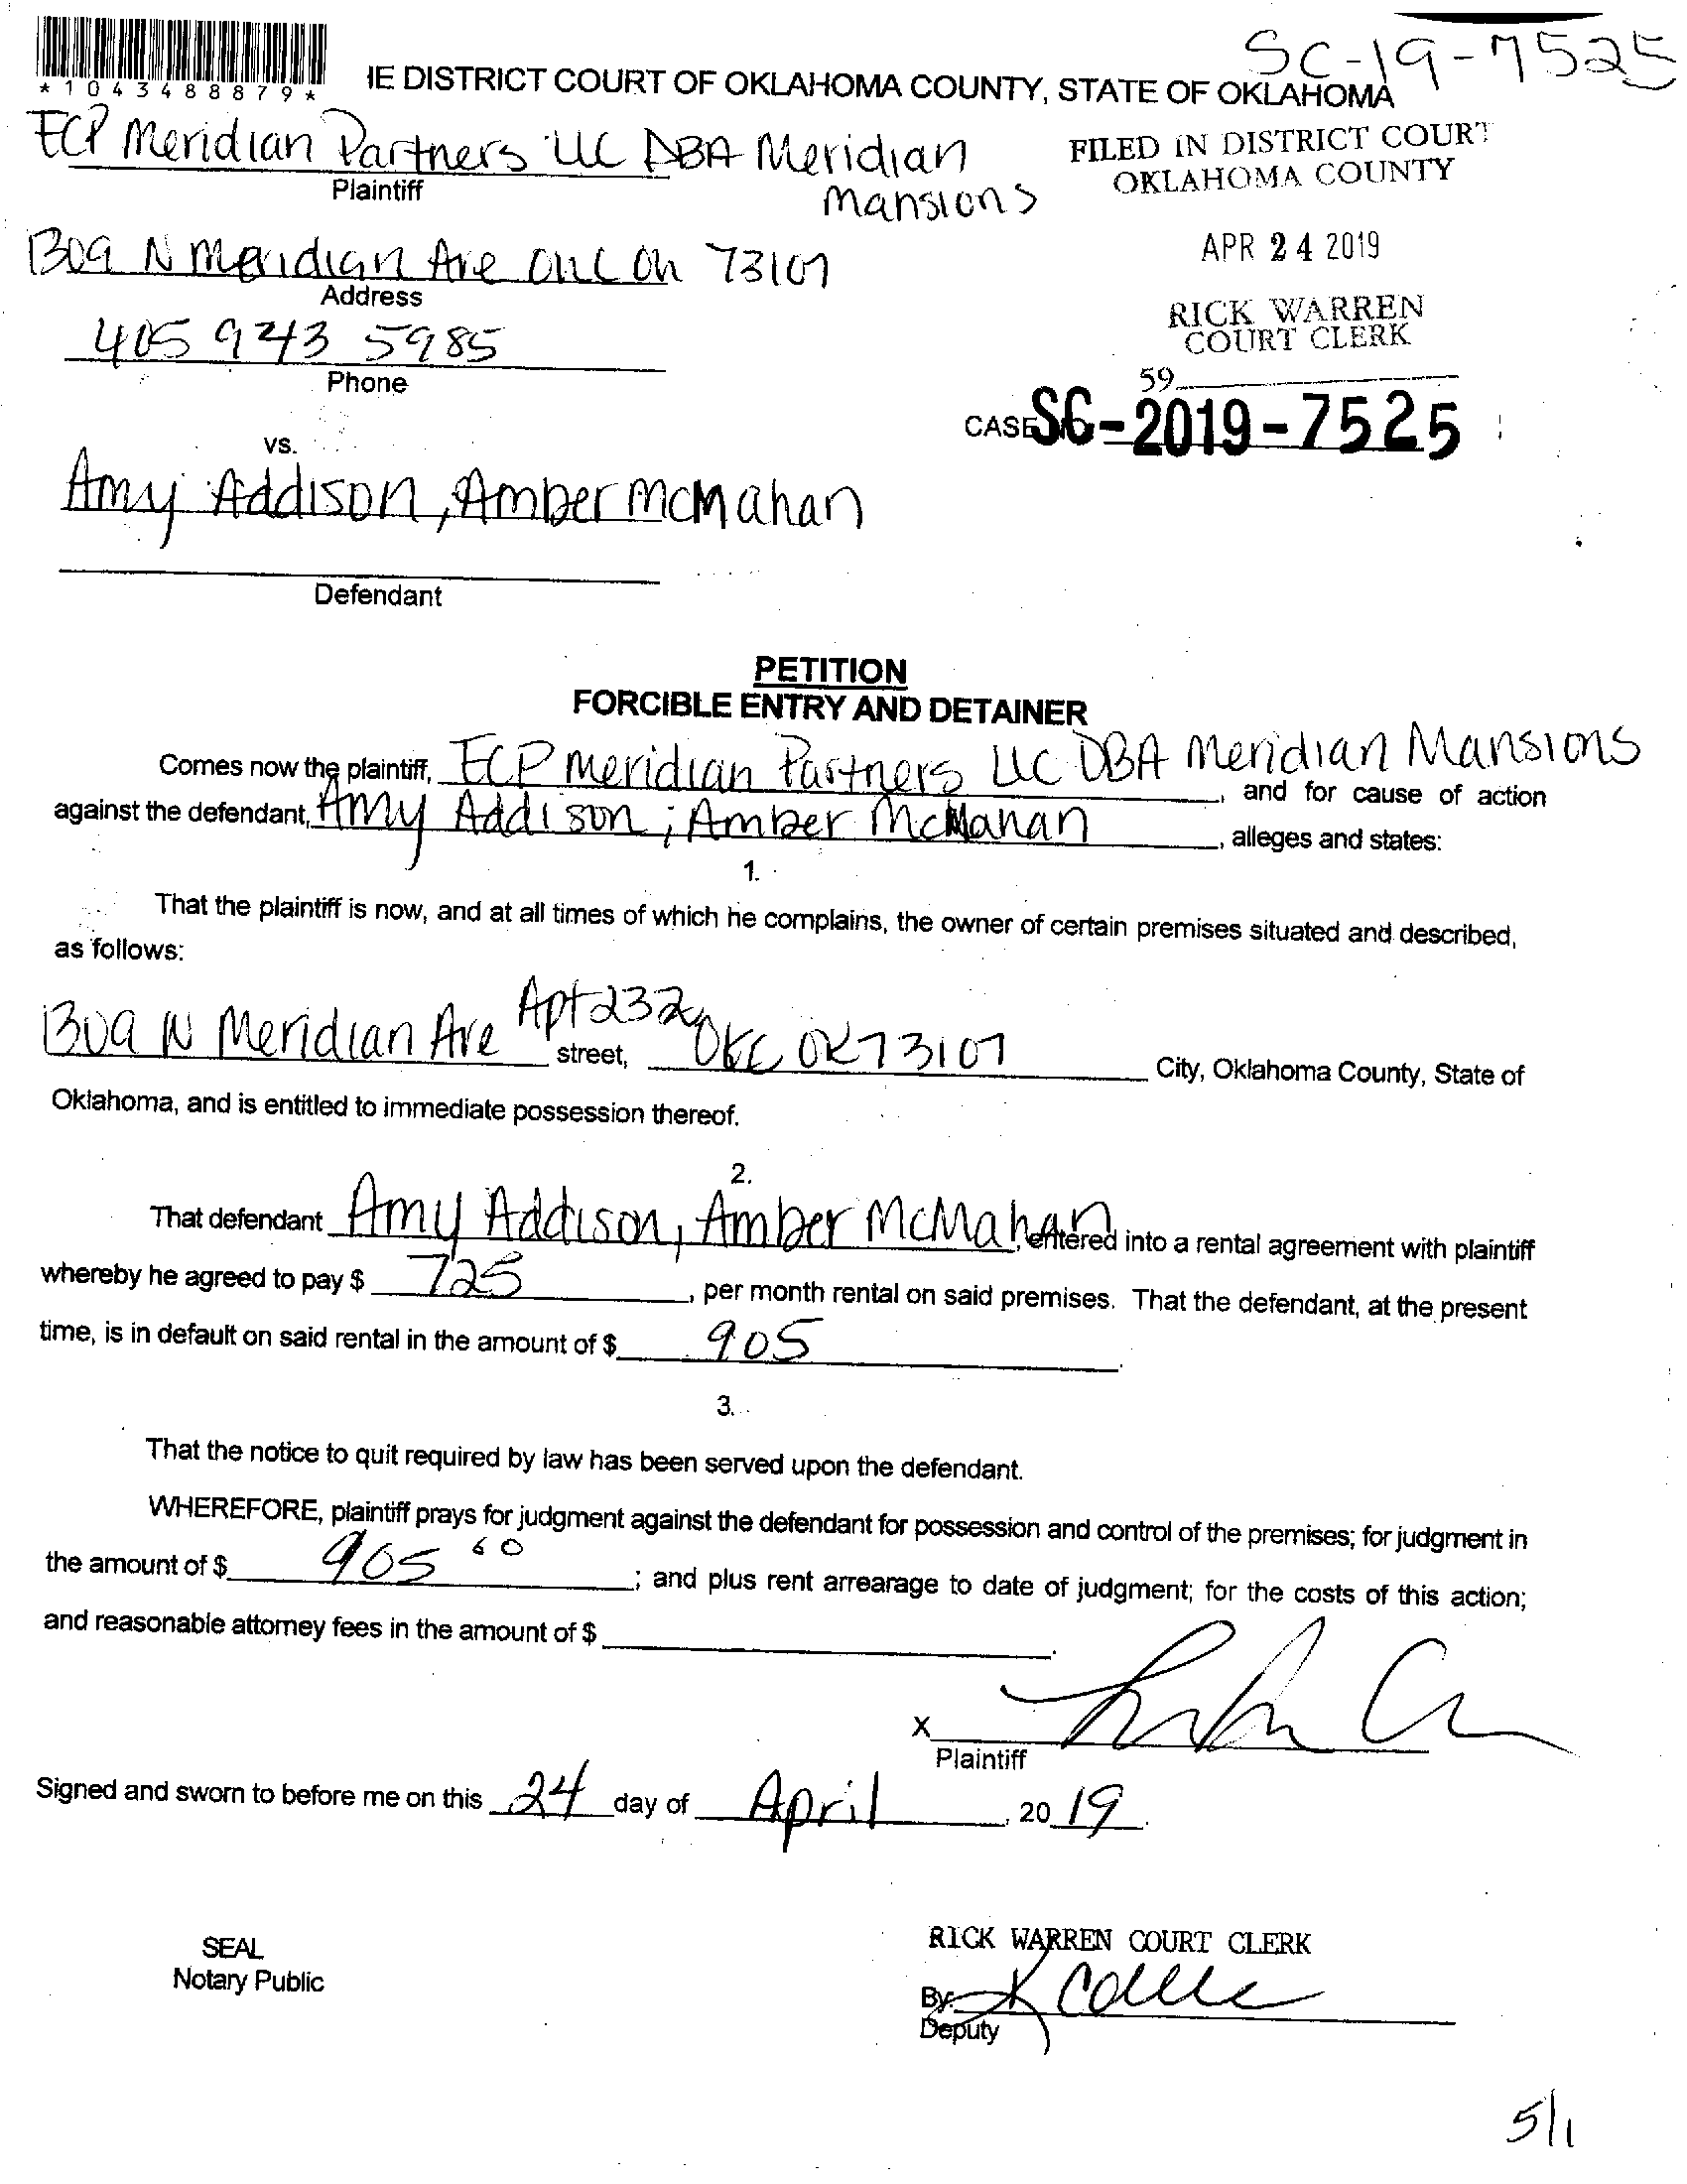 SC-19-7525
*1043488879*
IE DISTRICT COURT OF OKLAHOMA COUNTY, STATE OF OKLAHOMA
ECP Meridian Partners LLC DBA Meridian
Mansions
Plaintiff
FILED IN DISTRICT COURT
OKLAHOMA COUNTY
1309 N Meridian Ave OKC OK 73107
Address
APR 24 2019
405 943 5985
Phone
RICK WARREN
COURT CLERK
59
CASE SC-2019-7525
vs.
Amy Addison, Amber McMahan
Defendant
PETITION
FORCIBLE ENTRY AND DETAINER
Comes now the plaintiff, ECP Meridian Partners LLC DBA Meridian Mansions, and for cause of action
against the defendant, Amy Addison; Amber McMahan, alleges and states:
1.
That the plaintiff is now, and at all times of which he complains, the owner of certain premises situated and described,
as follows:
1309 N Meridian Ave Apt 232 street, OKC OK 73107 City, Oklahoma County, State of
Oklahoma, and is entitled to immediate possession thereof.
2.
That defendant Amy Addison, Amber McMahan, entered into a rental agreement with plaintiff
whereby he agreed to pay $ 725, per month rental on said premises. That the defendant, at the present
time, is in default on said rental in the amount of $ 905.
3.
That the notice to quit required by law has been served upon the defendant.
WHEREFORE, plaintiff prays for judgment against the defendant for possession and control of the premises; for judgment in
the amount of $ 905 60; and plus rent arrearage to date of judgment; for the costs of this action;
and reasonable attorney fees in the amount of $
X
Plaintiff
Signed and sworn to before me on this 24 day of April, 2019.
SEAL
Notary Public
RICK WARREN COURT CLERK
By:
Deputy
5/1